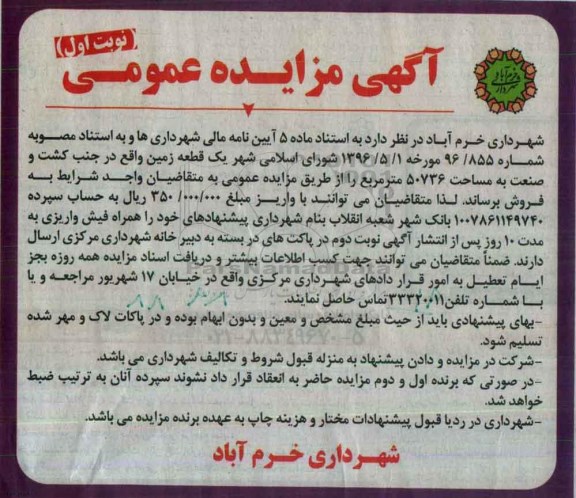 (نوبت اول)
آگهی مزایده عمومی
شهرداری خرم آباد در نظر دارد به استناد ماده ۵ آیین نامه مالی شهرداری ها و به استناد مصوبه
شماره ۸۵۵/ ۹۶ مورخه ۱/ ۵/ ۱۳۹۶ شورای اسلامی شهر یک قطعه زمین واقع در جنب کشت و
صنعت به مساحت ۵۰۷۳۶ مترمربع را از طریق مزایده عمومی به متقاضیان واجد شرایط به
فروش برساند. لذا متقاضیان می توانند با واریز مبلغ ۳۵۰/۰۰۰/۰۰۰ ریال به حساب سپرده
۱۰۰۷۸۶۱۱۴۹۷۴۰ بانک شهر شعبه انقلاب بنام شهرداری پیشنهادهای خود را همراه فیش واریزی به
مدت ۱۰ روز پس از انتشار آگهی نوبت دوم در پاکت های در بسته به دبیر خانه شهرداری مرکزی ارسال
دارند. ضمناً متقاضیان می توانند جهت کسب اطلاعات بیشتر و دریافت اسناد مزایده همه روزه بجز
ایام تعطیل به امور قرار دادهای شهرداری مرکزی واقع در خیابان ۱۷ شهریور مراجعه و یا
با شماره تلفن ۳۳۳۲۰۰۱۱ تماس حاصل نمایند.
-بهای پیشنهادی باید از حیث مبلغ مشخص و معین و بدون ابهام بوده و در پاکات لاک و مهر شده
تسلیم شود.
-شرکت در مزایده و دادن پیشنهاد به منزله قبول شروط و تکالیف شهرداری می باشد.
-در صورتی که برنده اول و دوم مزایده حاضر به انعقاد قرار داد نشوند سپرده آنان به ترتیب ضبط
خواهد شد.
-شهرداری در ردیا قبول پیشنهادات مختار و هزینه چاپ به عهده برنده مزایده می باشد.
شهرداری خرم آباد